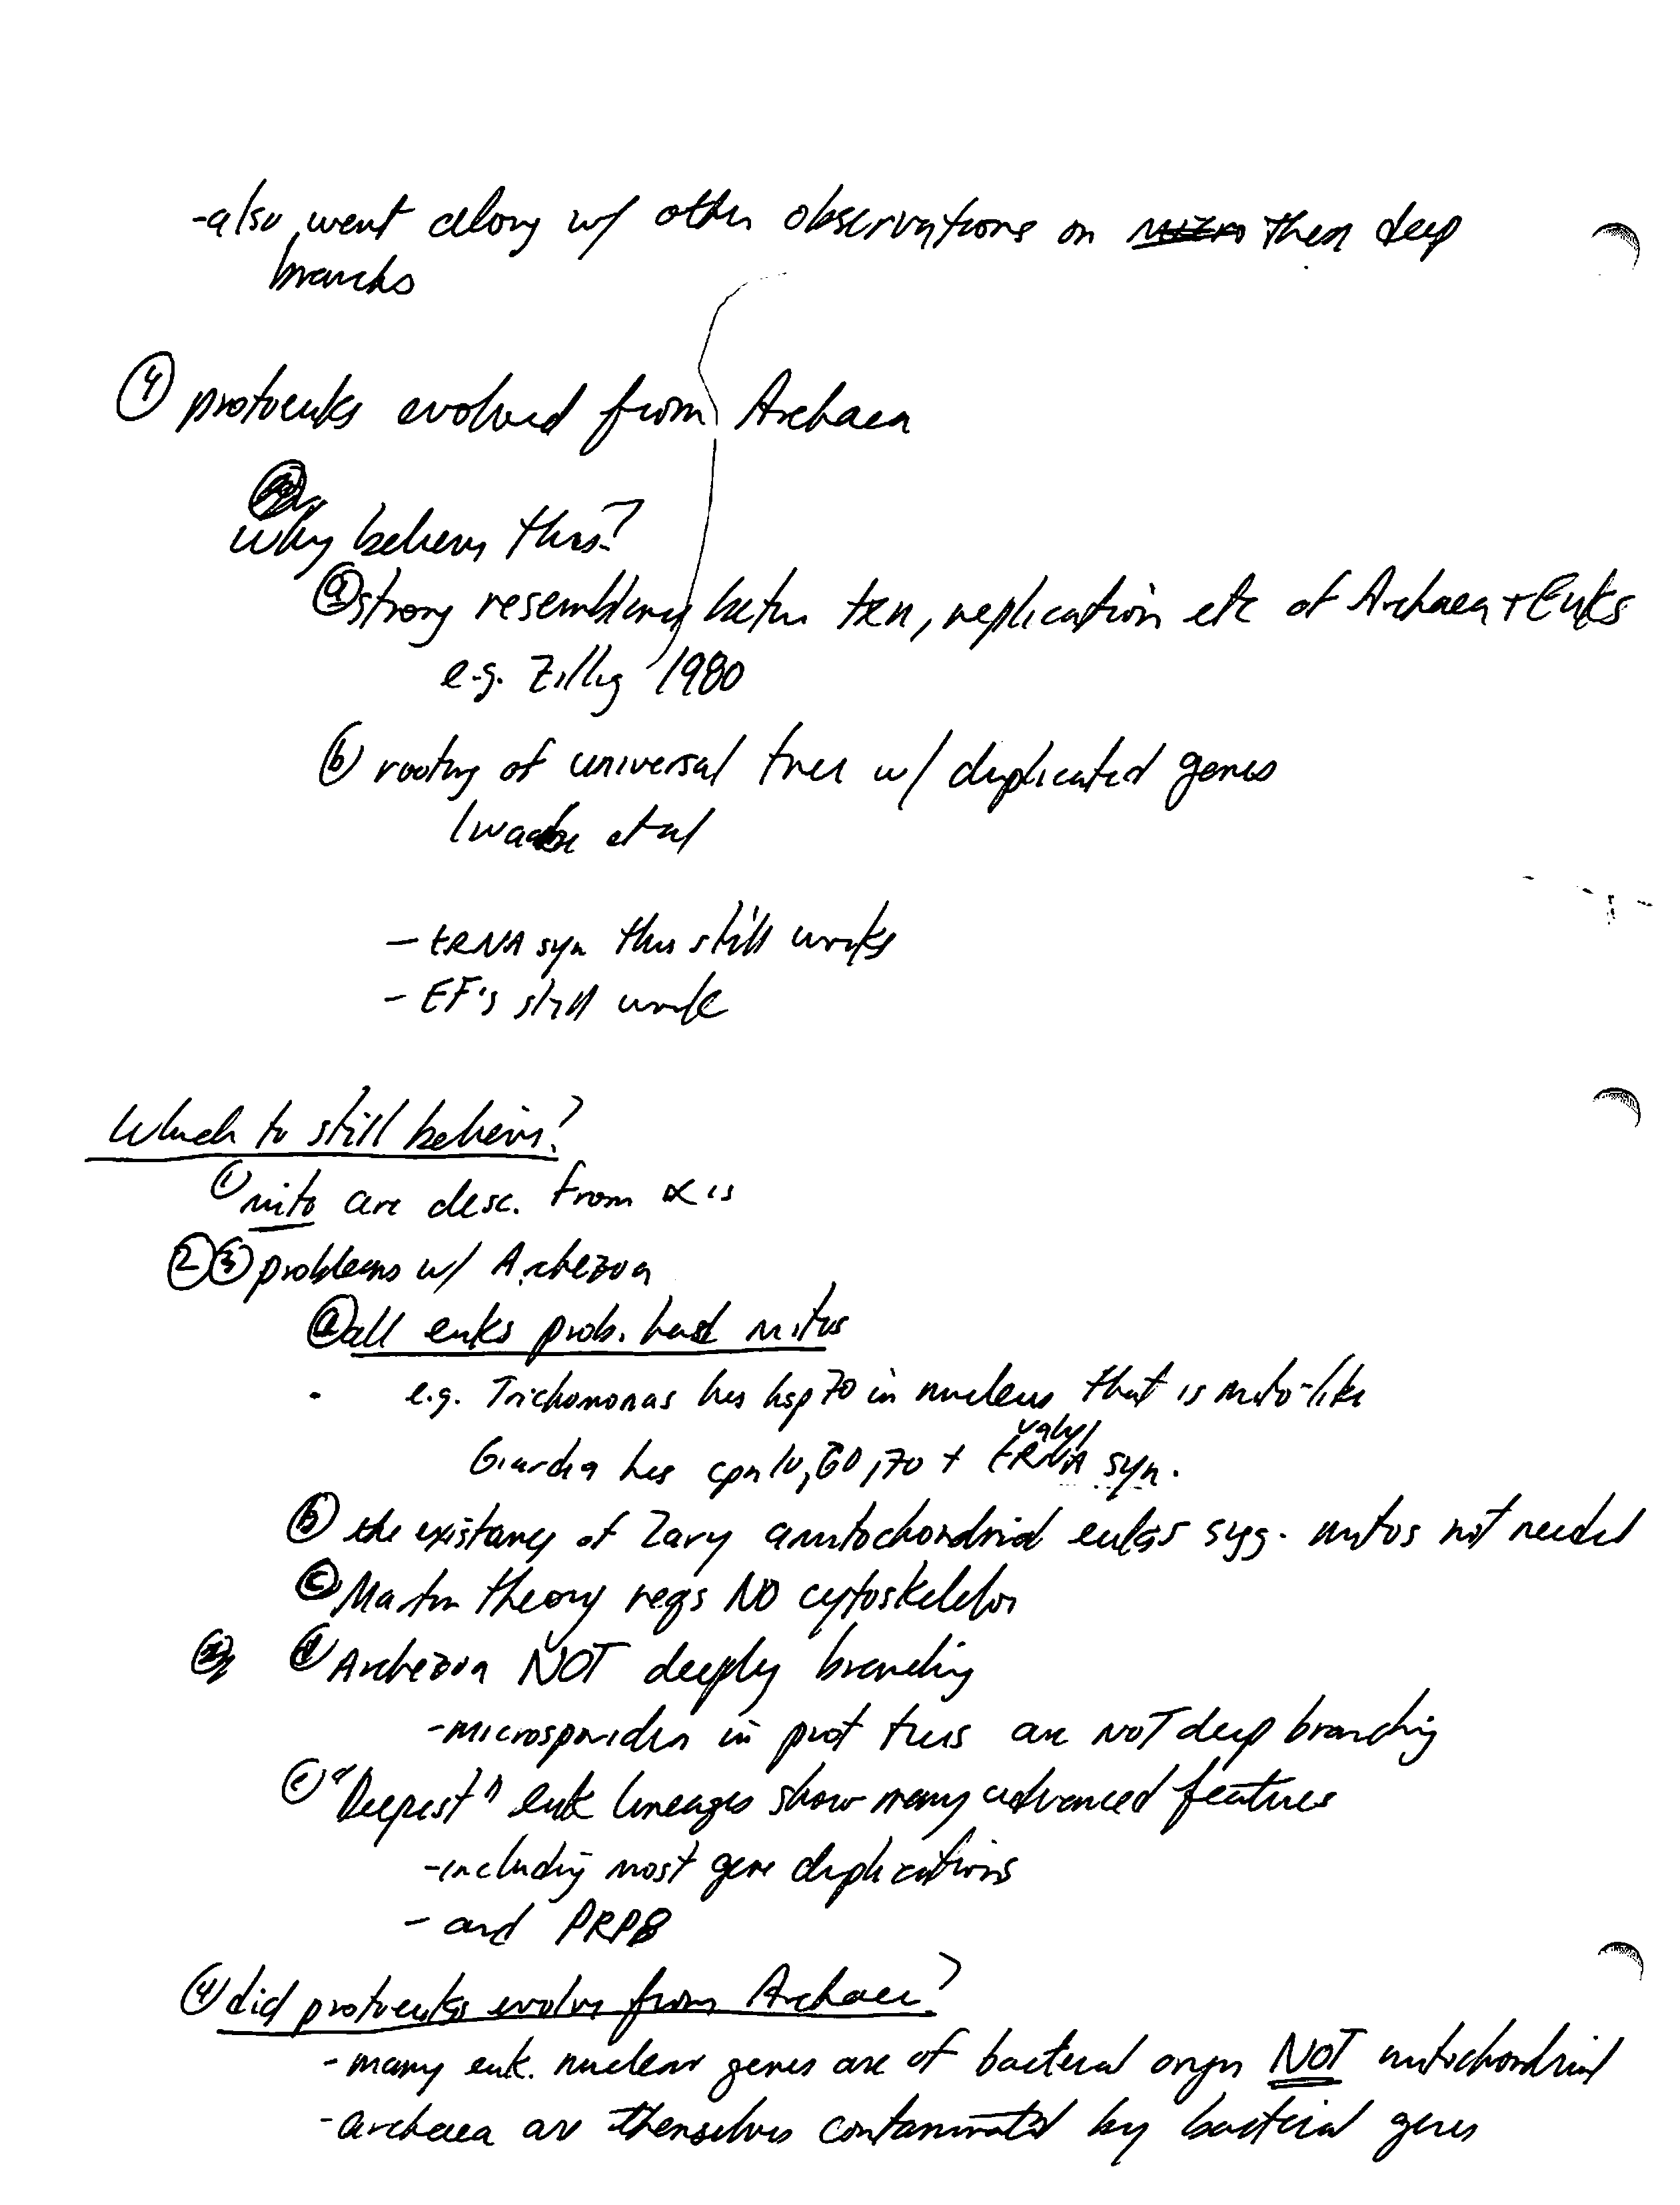 -also went along w/ other observations on these deep
branchs
④ protoeuks evolved from Archaea
why believe this?
ⓐ strong resemblance betw. txn, replication etc of Archaea + Euks
e.g. Zillig 1980
ⓑ rooting of universal tree w/ duplicated genes
Iwabe et al
- tRNA syn this still works
- EF's still work
Which to still believe?
① mito are desc. from α's
② ③ problems w/ Archezoa
ⓐ all euks prob. had mitos
e.g. Trichomonas has hsp70 in nucleus that is mito-like
valyl
Giardia has cpn10, 60, 70 + tRNA syn.
ⓑ the existance of 2ary amitochondrial euks sugg. mitos not needed
ⓒ Martin theory reqs NO cytoskeleton
ⓓ Archezoa NOT deeply branching
-microsporidia in prot trees are NOT deep branching
ⓔ "Deepest" euk lineages show many advanced features
-including most gene duplications
- and PRP8
④ did protoeuks evolve from Archaea?
- many euk. nuclear genes are of bacterial origin NOT mitochondrial
- archaea are themselves contaminated by bacterial genes